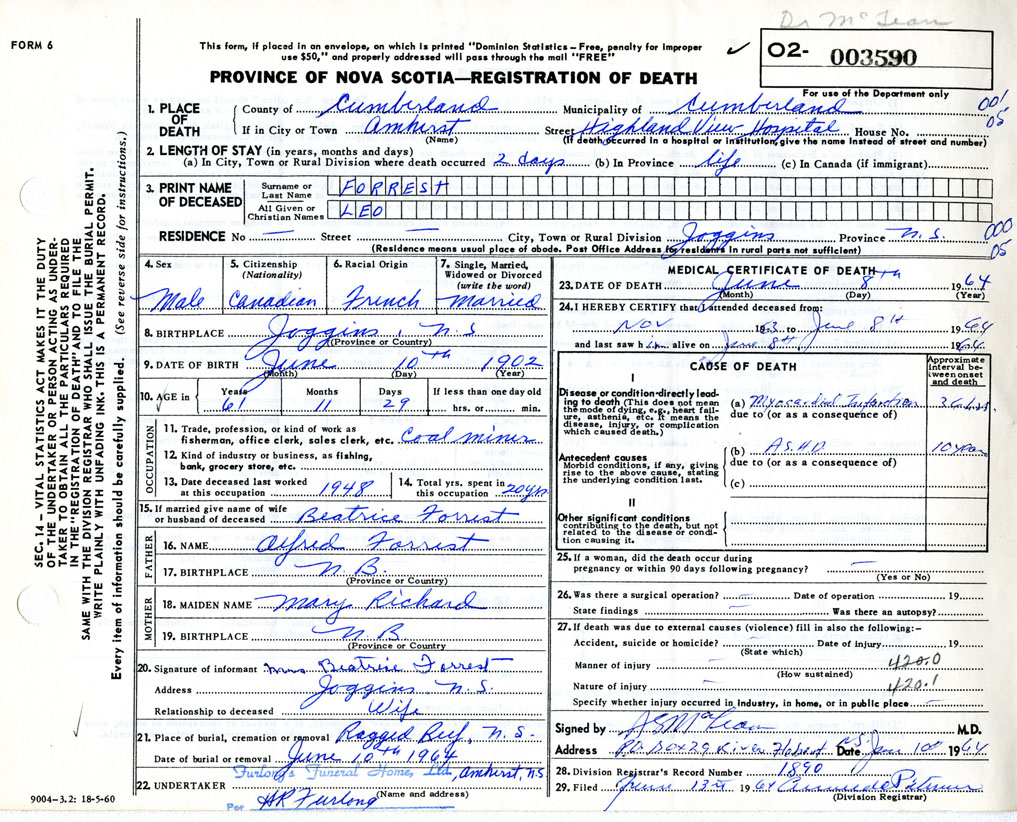 Dr McLean
FORM 6
This form, if placed in an envelope, on which is printed "Dominion Statistics – Free, penalty for improper
use $50," and properly addressed will pass through the mail "FREE"
✓
O2- 003590
PROVINCE OF NOVA SCOTIA—REGISTRATION OF DEATH
For use of the Department only
001
05
1. PLACE OF DEATH
County of Cumberland Municipality of Cumberland
If in City or Town Amherst Street Highland View Hospital House No.
(Name) (If death occurred in a hospital or institution, give the name instead of street and number)
2. LENGTH OF STAY (in years, months and days)
(a) In City, Town or Rural Division where death occurred 2 days (b) In Province life (c) In Canada (if immigrant)
3. PRINT NAME OF DECEASED
Surname or Last Name FORREST
All Given or Christian Names LEO
RESIDENCE No — Street — City, Town or Rural Division Joggins Province N.S.
000
05
(Residence means usual place of abode. Post Office Address for residents in rural parts not sufficient)
4. Sex Male
5. Citizenship (Nationality) Canadian
6. Racial Origin French
7. Single, Married, Widowed or Divorced (write the word) Married
8. BIRTHPLACE Joggins, N.S
(Province or Country)
9. DATE OF BIRTH June 10th 1902
(Month) (Day) (Year)
10. AGE in Years 61 Months 11 Days 29 If less than one day old hrs. or min.
OCCUPATION
11. Trade, profession, or kind of work as
fisherman, office clerk, sales clerk, etc. Coal miner
12. Kind of industry or business, as fishing,
bank, grocery store, etc.
13. Date deceased last worked at this occupation 1948
14. Total yrs. spent in this occupation 20 yrs
15. If married give name of wife
or husband of deceased Beatrice Forrest
FATHER
16. NAME Alfred Forrest
17. BIRTHPLACE N.B.
(Province or Country)
MOTHER
18. MAIDEN NAME Mary Richard
19. BIRTHPLACE N.B
(Province or Country
20. Signature of informant Mrs Beatrice Forrest
Address Joggins N.S.
Relationship to deceased Wife
21. Place of burial, cremation or removal Ragged Reef, N.S.
Date of burial or removal June 10th 1964
22. UNDERTAKER Furlong's Funeral Home, Ltd., Amherst, N.S
(Name and address)
Per HR Furlong
9004-3.2: 18-5-60
MEDICAL CERTIFICATE OF DEATH
23. DATE OF DEATH June 8th 1964
(Month) (Day) (Year)
24. I HEREBY CERTIFY that I attended deceased from:
Nov 1963 to June 8th 1964
and last saw him alive on June 8th 1964
CAUSE OF DEATH
Approximate interval between onset and death
I
Disease or condition directly leading to death (This does not mean the mode of dying, e.g., heart failure, asthenia, etc. It means the disease, injury, or complication which caused death.)
(a) Myocardial Infarction
due to (or as a consequence of)
Antecedent causes
Morbid conditions, if any, giving rise to the above cause, stating the underlying condition last.
(b) ASHD 10 years
due to (or as a consequence of)
(c)
II
Other significant conditions
contributing to the death, but not related to the disease or condition causing it.
25. If a woman, did the death occur during
pregnancy or within 90 days following pregnancy? —
(Yes or No)
26. Was there a surgical operation? — Date of operation 19
State findings — Was there an autopsy?
27. If death was due to external causes (violence) fill in also the following:-
Accident, suicide or homicide? — Date of injury 19
(State which)
Manner of injury — 420.0
(How sustained)
Nature of injury — 420.1
Specify whether injury occurred in industry, in home, or in public place —
Signed by ASMcLean M.D.
Address P.O. Box 29 River Hebert N.S. Date June 10th 1964
28. Division Registrar's Record Number 1890
29. Filed June 13th 1964
(Division Registrar)
SEC. 14 – VITAL STATISTICS ACT MAKES IT THE DUTY
OF THE UNDERTAKER OR PERSON ACTING AS UNDER-
TAKER TO OBTAIN ALL THE PARTICULARS REQUIRED
IN THE "REGISTRATION OF DEATH" AND TO FILE THE
SAME WITH THE DIVISION REGISTRAR WHO SHALL ISSUE THE BURIAL PERMIT.
WRITE PLAINLY WITH UNFADING INK. THIS IS A PERMANENT RECORD.
Every item of information should be carefully supplied. (See reverse side for instructions.)